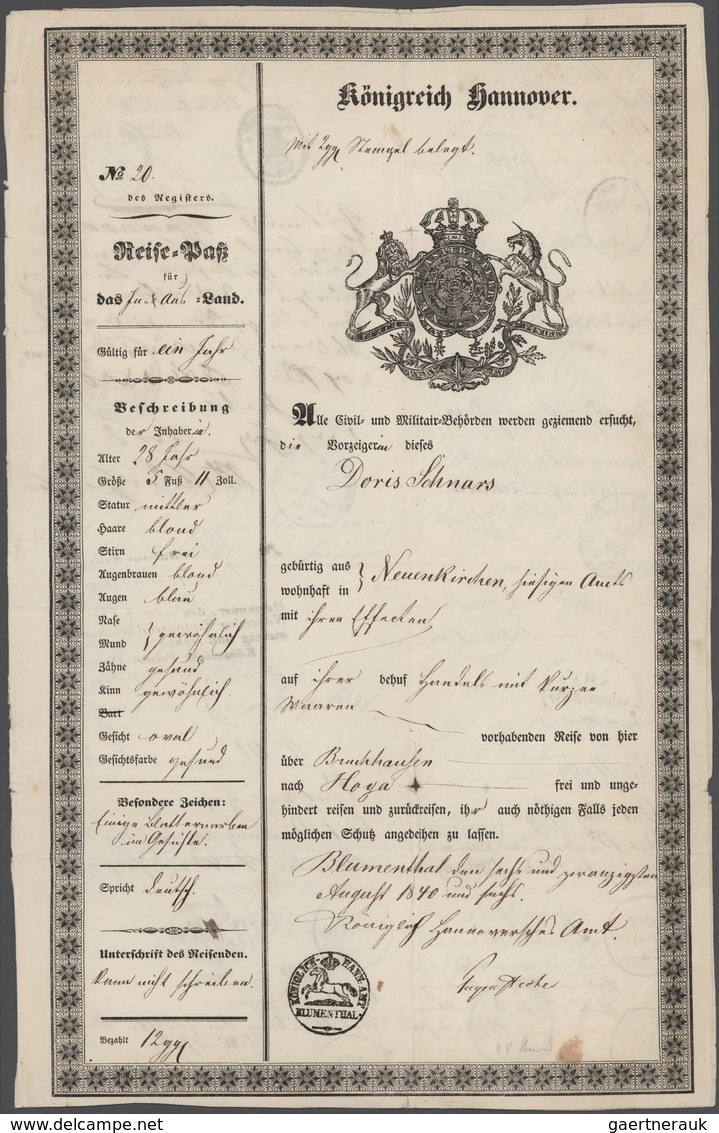 Königreich Hannover.
Mit 2ggl Stempel belegt.
No 20.
des Registers.
Reise-Paß
für
das In- & Aus-Land.
Gültig für ein Jahr
Beschreibung
der Inhaberin.
Alter 28 Jahr
Größe 5 Fuß 11 Zoll.
Statur mittler
Haare blond
Stirn frei
Augenbrauen blond
Augen blau
Nase
Mund } gewöhnlich
Zähne gesund
Kinn gewöhnlich.
Bart
Gesicht oval
Gesichtsfarbe gesund
Besondere Zeichen:
Einige Blatternarben
im Gesichte.
Spricht deutsch.
Unterschrift des Reisenden.
Kann nicht schreiben.
Bezahlt 12ggl
Alle Civil- und Militair-Behörden werden geziemend ersucht,
die Vorzeigerin dieses
Doris Schnars
gebürtig aus
wohnhaft in } Neuenkirchen, hiesigen Amts
mit ihren Effecten
auf ihrer behuf Handels mit kurzen
Waaren
vorhabenden Reise von hier
über Bruchhausen
nach Hoya frei und unge-
hindert reisen und zurückreisen, ihr auch nöthigen Falls jeden
möglichen Schutz angedeihen zu lassen.
Blumenthal den sechs und zwanzigsten
August 1840 und sechs.
Königlich Hannoversches Amt.
KÖNIGLICH HANN. AMT
BLUMENTHAL
delcampe.net
gaertnerauk